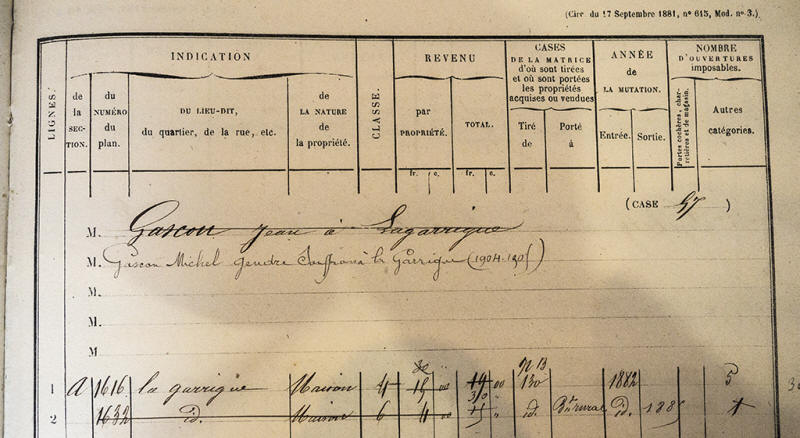 (Circ du 17 Septembre 1881, nº 615, Mod. nº 3.)
LIGNES.
INDICATION
de la SECTION.
du NUMÉRO du plan.
DU LIEU-DIT, du quartier, de la rue, etc.
de LA NATURE de la propriété.
CLASSE.
REVENU
par PROPRIÉTÉ.
TOTAL.
fr. c. fr. c.
CASES DE LA MATRICE d'où sont tirées et où sont portées les propriétés acquises ou vendues
Tiré de
Porté à
ANNÉE de LA MUTATION.
Entrée. Sortie.
NOMBRE D'OUVERTURES imposables.
Portes cochères, charretières et de magasin.
Autres catégories.
(CASE 57 )
M. Gascon Jean à Lagarrigue
M. Gascon Michel gendre à la Garrigue (1904-1905)
M.
M.
M
30 " n B
1 A 1616 la garrigue Maison 4 15 00 00 130 1882 5 30
2 1632 id. Maison 6 4 00 15 " id. Bt rural id. 1885 1